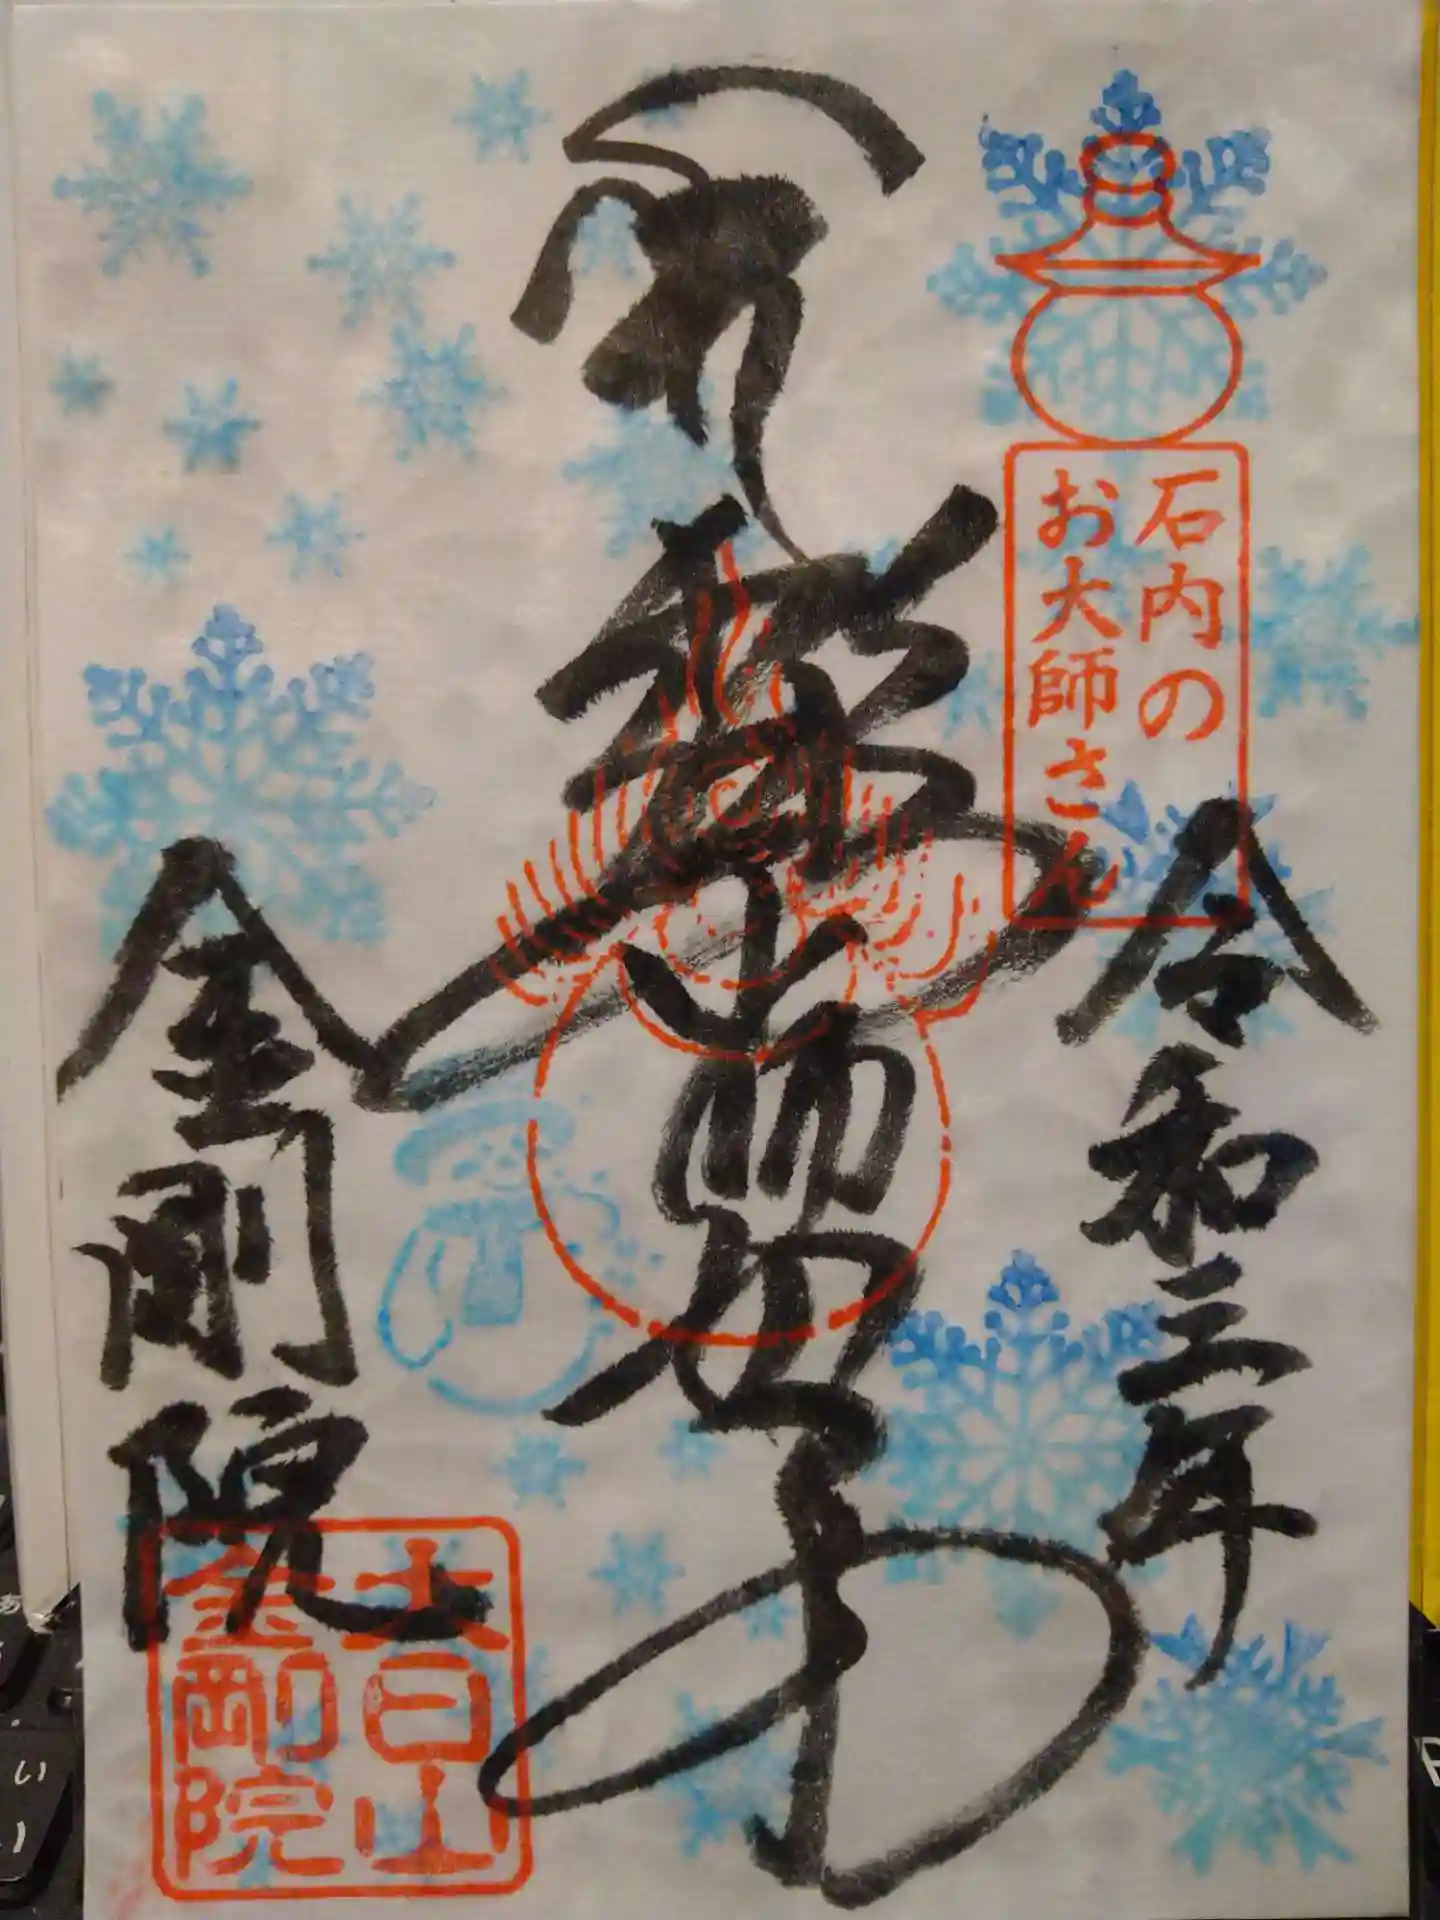 石内の
お大師さん
令和三年
薬師如来
金剛院
大日山
金剛院